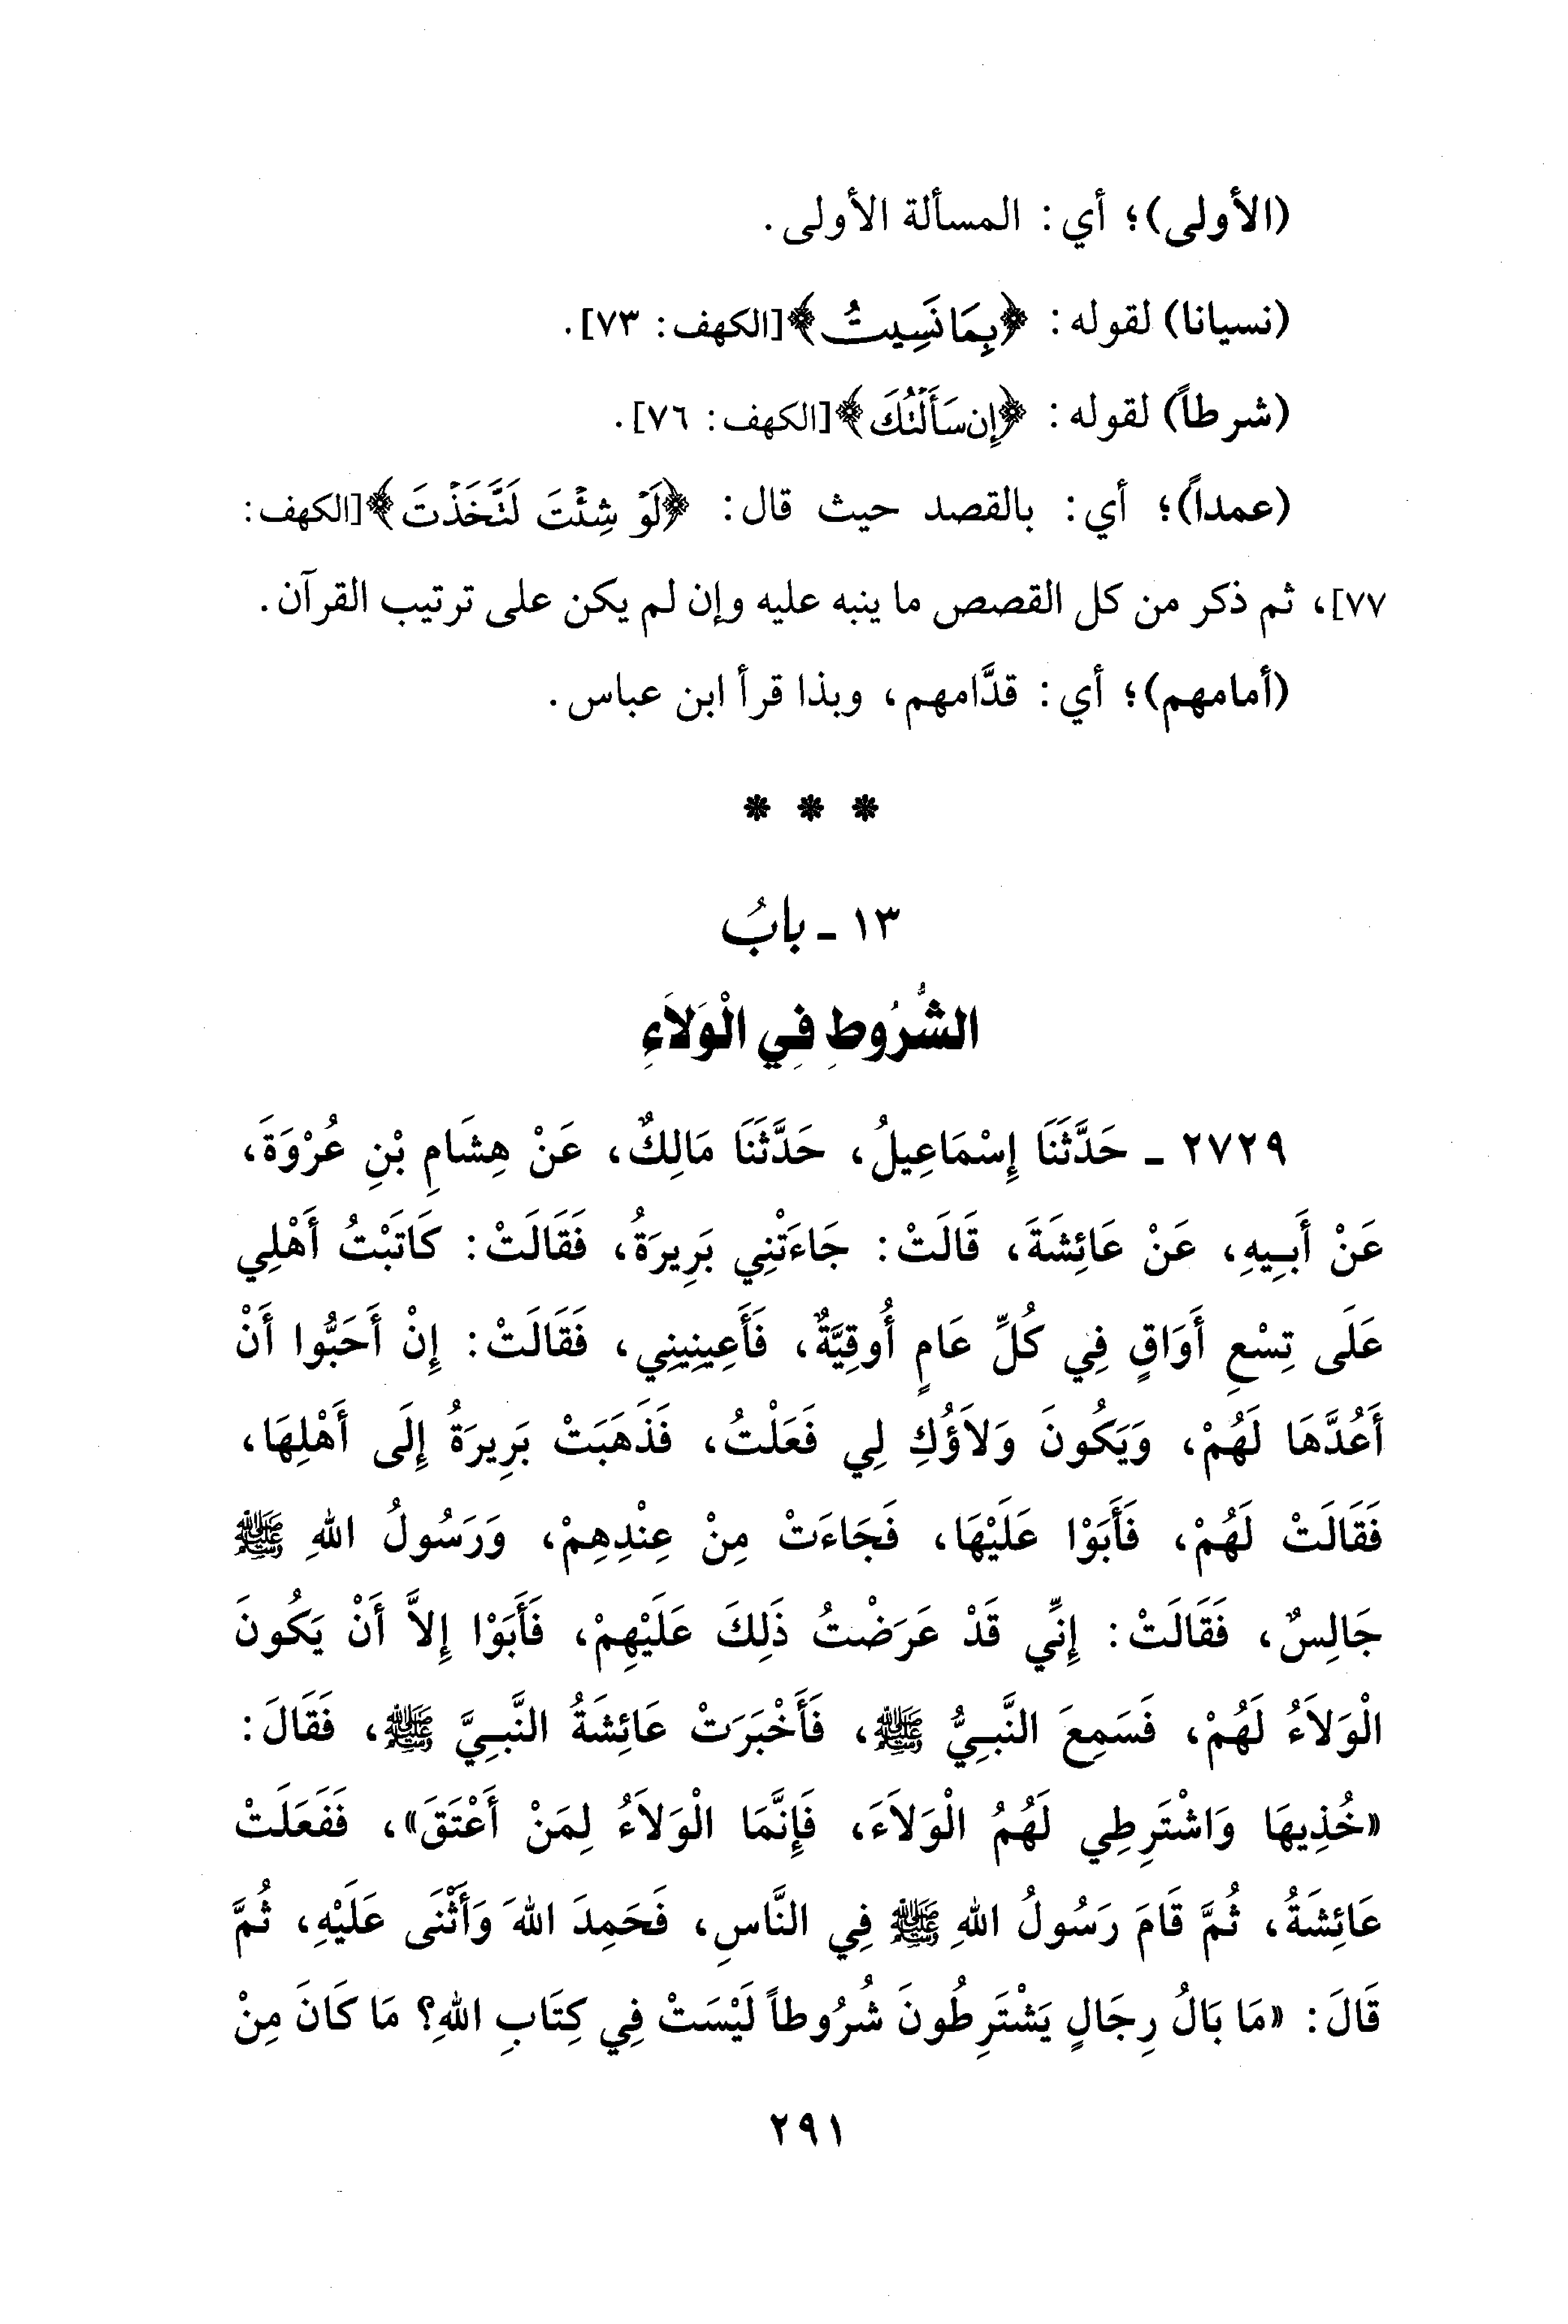 (الأولى)؛ أي: المسألة الأولى.
(نسيانا) لقوله: ﴿بِمَا نَسِيتُ﴾[الكهف: ٧٣].
(شرطاً) لقوله: ﴿إِن سَأَلْتُكَ﴾[الكهف: ٧٦].
(عمداً)؛ أي: بالقصد حيث قال: ﴿لَوْ شِئْتَ لَتَّخَذْتَ﴾[الكهف:
٧٧]، ثم ذكر من كل القصص ما ينبه عليه وإن لم يكن على ترتيب القرآن.
(أمامهم)؛ أي: قدَّامهم، وبذا قرأ ابن عباس.
* * *
١٣ - بابُ
الشُّرُوطِ فِي الْوَلاَءِ
٢٧٢٩ - حَدَّثَنَا إِسْمَاعِيلُ، حَدَّثَنَا مَالِكٌ، عَنْ هِشَامِ بْنِ عُرْوَةَ،
عَنْ أَبِيهِ، عَنْ عَائِشَةَ، قَالَتْ: جَاءَتْنِي بَرِيرَةُ، فَقَالَتْ: كَاتَبْتُ أَهْلِي
عَلَى تِسْعِ أَوَاقٍ فِي كُلِّ عَامٍ أُوقِيَّةٌ، فَأَعِينِينِي، فَقَالَتْ: إِنْ أَحَبُّوا أَنْ
أَعُدَّهَا لَهُمْ، وَيَكُونَ وَلاَؤُكِ لِي فَعَلْتُ، فَذَهَبَتْ بَرِيرَةُ إِلَى أَهْلِهَا،
فَقَالَتْ لَهُمْ، فَأَبَوْا عَلَيْهَا، فَجَاءَتْ مِنْ عِنْدِهِمْ، وَرَسُولُ اللهِ ﷺ
جَالِسٌ، فَقَالَتْ: إِنِّي قَدْ عَرَضْتُ ذَلِكَ عَلَيْهِمْ، فَأَبَوْا إِلاَّ أَنْ يَكُونَ
الْوَلاَءُ لَهُمْ، فَسَمِعَ النَّبِيُّ ﷺ، فَأَخْبَرَتْ عَائِشَةُ النَّبِيَّ ﷺ، فَقَالَ:
«خُذِيهَا وَاشْتَرِطِي لَهُمُ الْوَلاَءَ، فَإِنَّمَا الْوَلاَءُ لِمَنْ أَعْتَقَ»، فَفَعَلَتْ
عَائِشَةُ، ثُمَّ قَامَ رَسُولُ اللهِ ﷺ فِي النَّاسِ، فَحَمِدَ اللهَ وَأَثْنَى عَلَيْهِ، ثُمَّ
قَالَ: «مَا بَالُ رِجَالٍ يَشْتَرِطُونَ شُرُوطاً لَيْسَتْ فِي كِتَابِ اللهِ؟ مَا كَانَ مِنْ
٢٩١